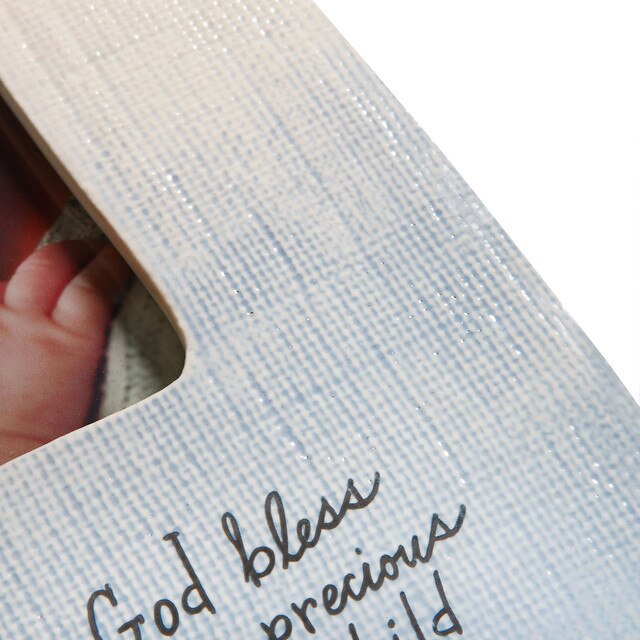 God bless
precious